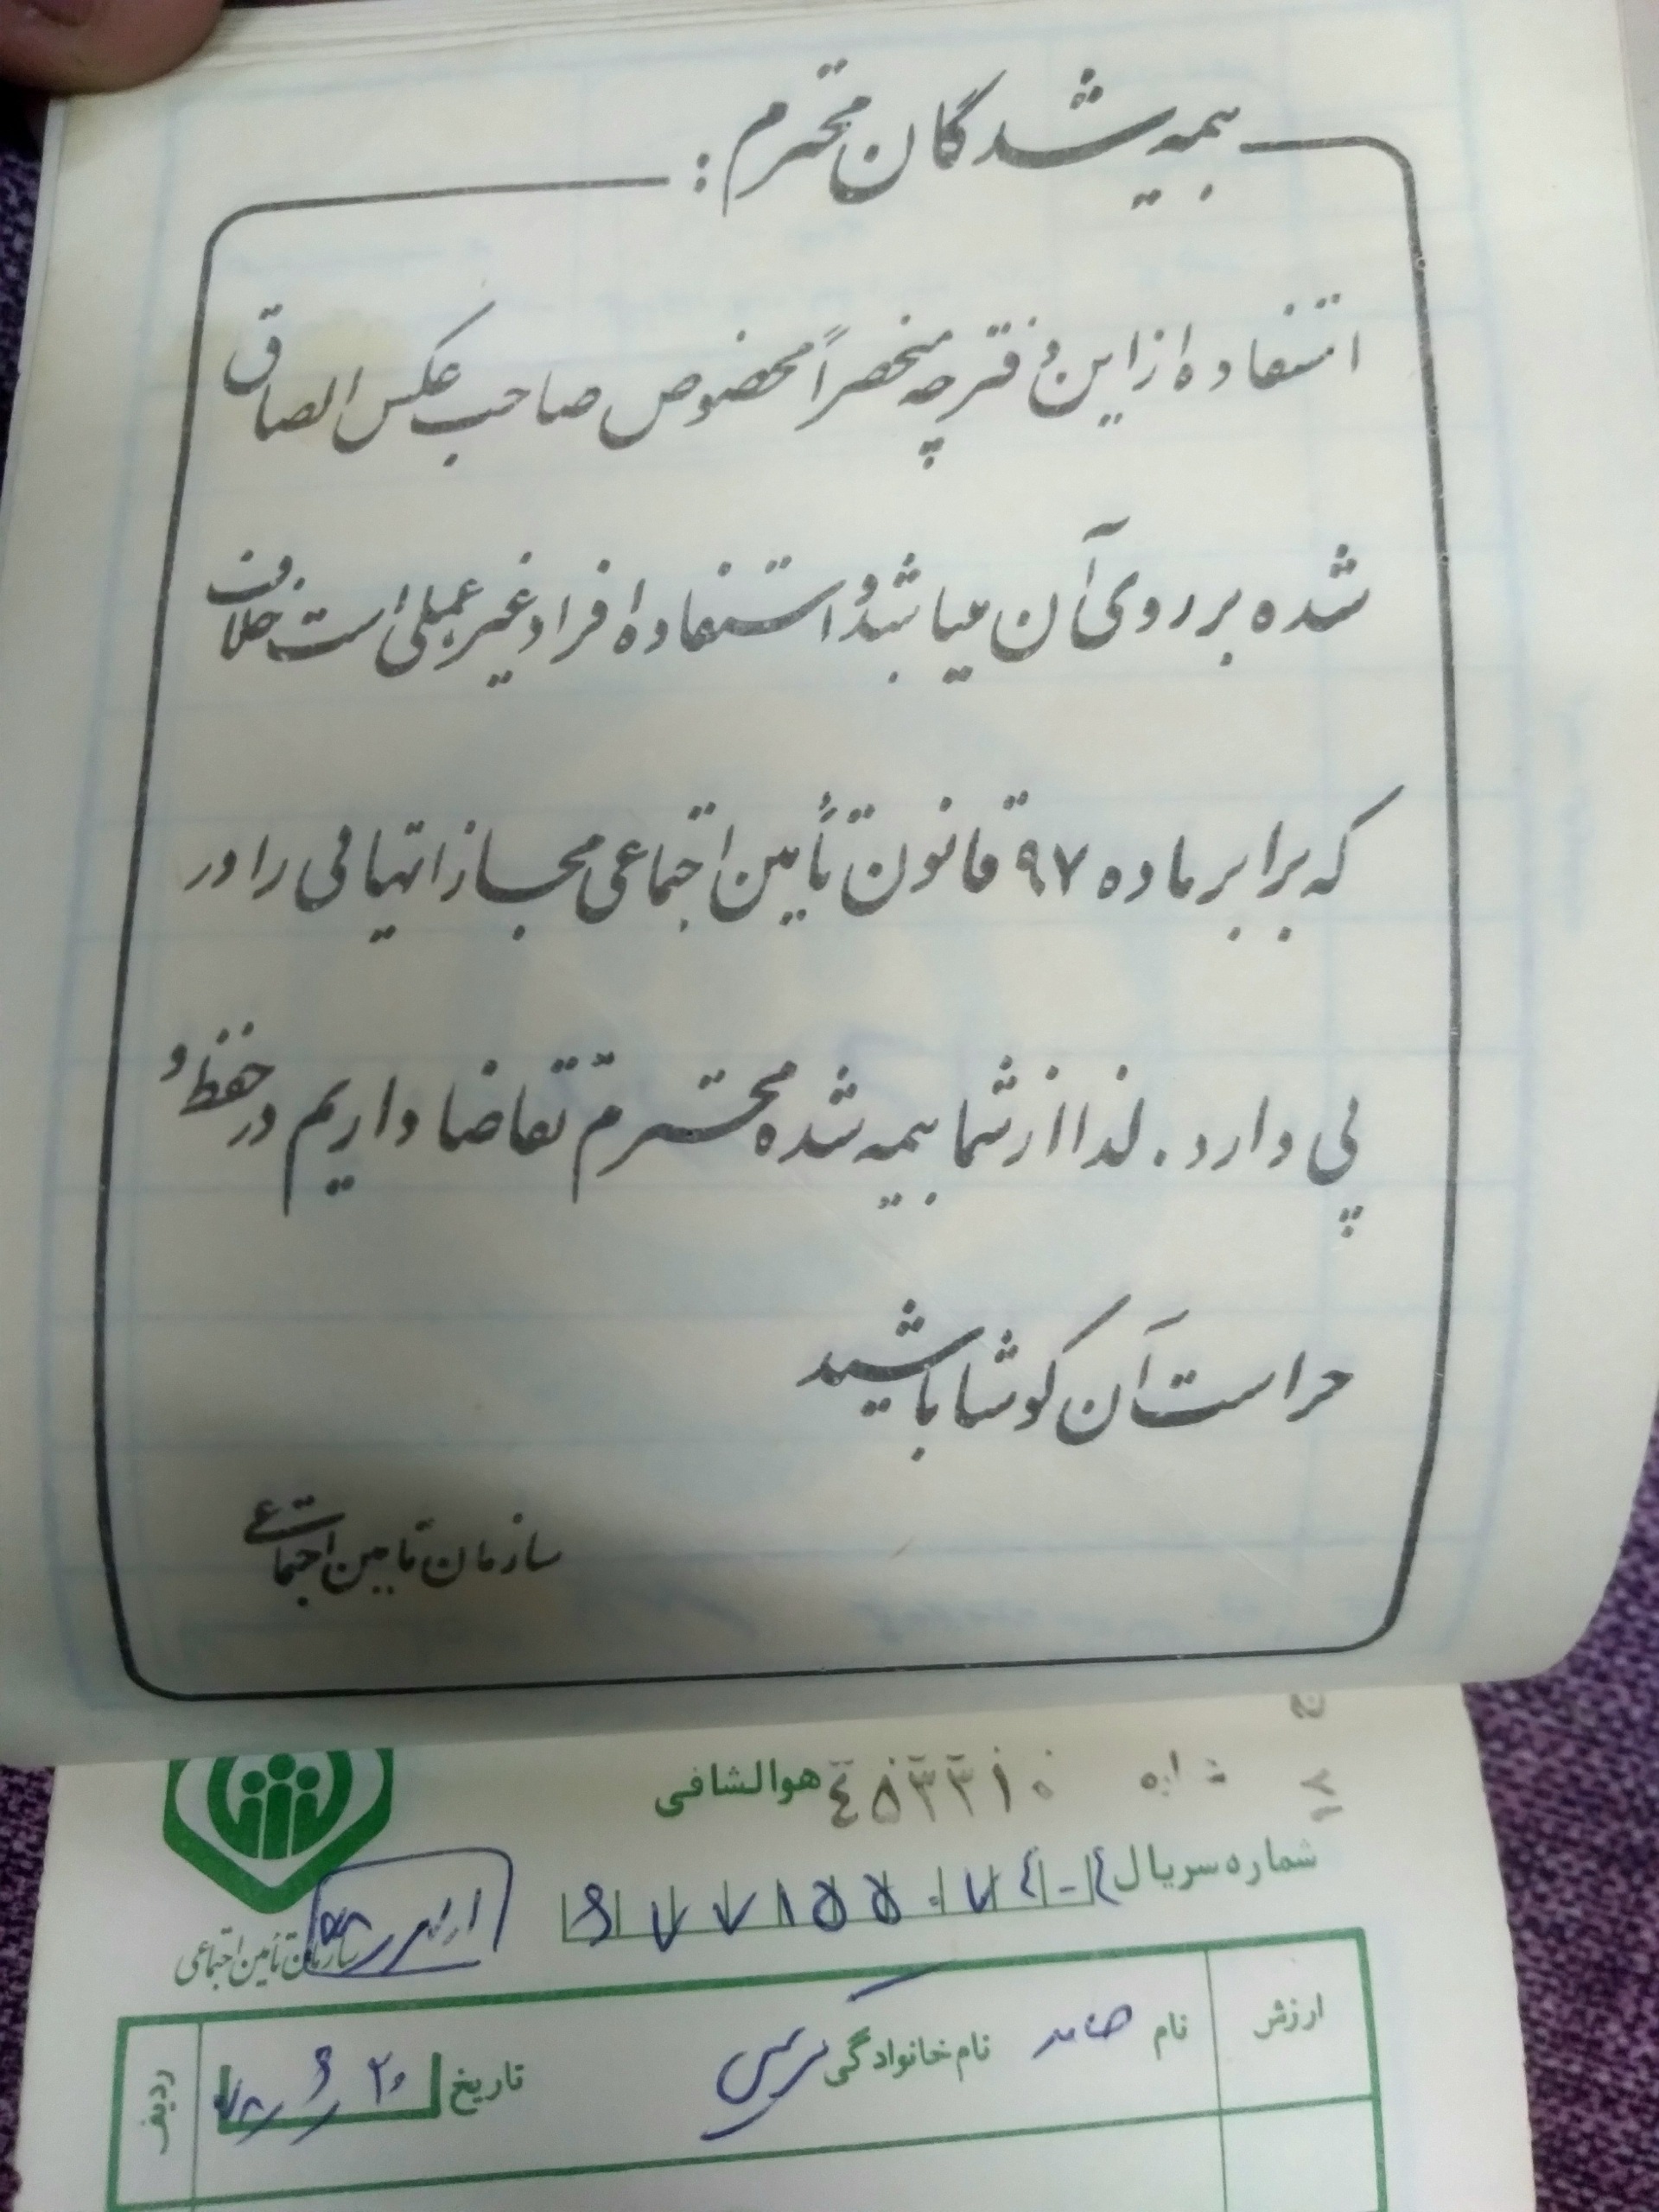 بیمه شدگان محترم :
استفاده از این دفترچه منحصراً مخصوص صاحب عکس الصاق
شده بر روی آن میباشد و استفاده افراد غیر عملی است خلاف
که برابر ماده ۹۷ قانون تأمین اجتماعی مجازاتهائی را در
پی دارد. لذا از شما بیمه شده محترم تقاضا داریم در حفظ و
حراست آن کوشا باشید
سازمان تامین اجتماعی
هوالشافی
شماره سریال
سازمان تأمین اجتماعی
ارزش
نام حامد
نام خانوادگی
تاریخ ۲۰ / ۶ / ۷۸
ردیف